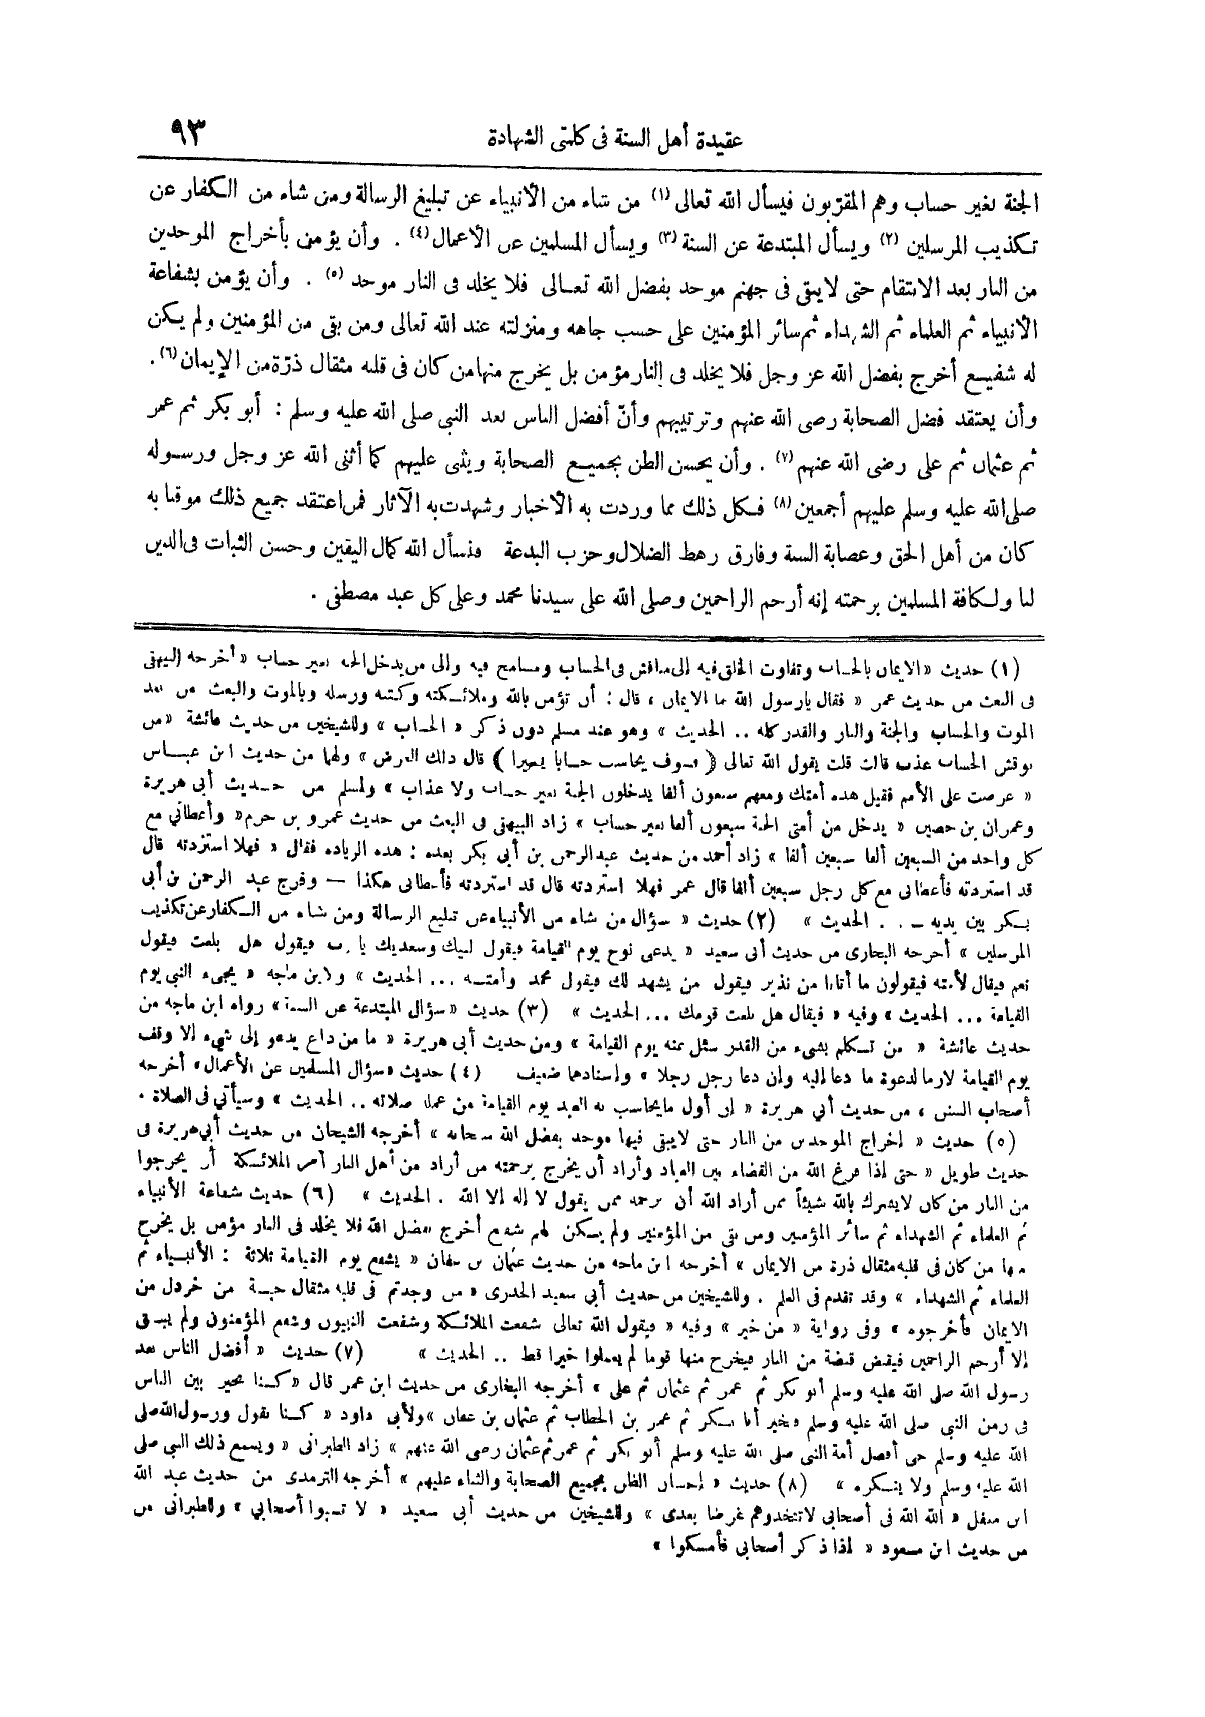 عقيدة أهل السنة فى كلمتى الشهادة
٩٣
الجنة بغير حساب وهم المقرّبون فيسأل الله تعالى (١) من شاء من الأنبياء عن تبليغ الرسالة ومن شاء من الكفار عن
تكذيب المرسلين (٢) ويسأل المبتدعة عن السنة (٣) ويسأل المسلمين عن الأعمال (٤) . وأن يؤمن بأخراج الموحدين
من النار بعد الانتقام حتى لايبقى فى جهنم موحد بفضل الله تعالى فلا يخلد فى النار موحد (٥) . وأن يؤمن بشفاعة
الأنبياء ثم العلماء ثم الشهداء ثم سائر المؤمنين على حسب جاهه ومنزلته عند الله تعالى ومن بقى من المؤمنين ولم يكن
له شفيع أخرج بفضل الله عز وجل فلا يخلد فى النار مؤمن بل يخرج منها من كان فى قلبه مثقال ذرّة من الإيمان (٦) .
وأن يعتقد فضل الصحابة رضى الله عنهم وترتيبهم وأنّ أفضل الناس بعد النبى صلى الله عليه وسلم : أبو بكر ثم عمر
ثم عثمان ثم على رضى الله عنهم (٧) . وأن يحسن الظن بجميع الصحابة ويثنى عليهم كما أثنى الله عز وجل ورسوله
صلى الله عليه وسلم عليهم أجمعين (٨) فكل ذلك مما وردت به الأخبار وشهدت به الآثار فمن اعتقد جميع ذلك موقنا به
كان من أهل الحق وعصابة السنة وفارق رهط الضلال وحزب البدعة فنسأل الله كمال اليقين وحسن الثبات فى الدين
لنا ولكافة المسلمين برحمته إنه أرحم الراحمين وصلى الله على سيدنا محمد وعلى كل عبد مصطفى .
(١) حديث « الايمان بالحساب وتفاوت الخلق فيه إلى مناقش فى الحساب ومسامح فيه وإلى من يدخل الجنة بغير حساب « أخرجه البيهقى
فى البعث من حديث عمر « فقال يارسول الله ما الايمان ، قال : أن تؤمن بالله وملائكته وكتبه ورسله وبالموت والبعث من بعد
الموت والحساب والجنة والنار والقدر كله .. الحديث » وهو عند مسلم دون ذكر « الحساب » وللشيخين من حديث عائشة « من
نوقش الحساب عذب قالت قلت يقول الله تعالى ( فسوف يحاسب حسابا يسيرا ) قال ذلك العرض » ولهما من حديث ابن عباس
« عرضت على الأمم فقيل هذه أمتك ومعهم سبعون ألفا يدخلون الجنة بغير حساب ولا عذاب » ولمسلم من حديث أبى هريرة
وعمران بن حصين « يدخل من أمتى الجنة سبعون ألفا بغير حساب » زاد البيهقى فى البعث من حديث عمرو بن حزم « وأعطانى مع
كل واحد من السبعين ألفا سبعين ألفا » زاد أحمد من حديث عبدالرحمن بن أبى بكر بعده : هذه الزيادة فقال « فهلا استزدته قال
قد استزدته فأعطانى مع كل رجل سبعين ألفا قال عمر فهلا استزدته قال قد استزدته فأعطانى هكذا — وفرج عبد الرحمن بن أبى
بكر بين يديه — . . الحديث » (٢) حديث « سؤال من شاء من الأنبياء عن تبليغ الرسالة ومن شاء من الكفار عن تكذيب
المرسلين » أخرجه البخارى من حديث أبى سعيد « يدعى نوح يوم القيامة فيقول لبيك وسعديك يا رب فيقول هل بلغت فيقول
نعم فيقال لأمته فيقولون ما أتانا من نذير فيقول من يشهد لك فيقول محمد وأمته ... الحديث » ولابن ماجه « يجىء النبى يوم
القيامة ... الحديث » وفيه « فيقال هل بلغت قومك ... الحديث » (٣) حديث « سؤال المبتدعة عن السنة » رواه ابن ماجه من
حديث عائشة « من تكلم بشىء من القدر سئل عنه يوم القيامة » ومن حديث أبى هريرة « ما من داع يدعو إلى شىء إلا وقف
يوم القيامة لازما لدعوة ما دعا إليه وإن دعا رجل رجلا » وإسنادهما ضعيف (٤) حديث « سؤال المسلمين عن الأعمال » أخرجه
أصحاب السنن ، من حديث أبي هريرة « إن أول مايحاسب به العبد يوم القيامة من عمله صلاته .. الحديث » وسيأتى فى الصلاة .
(٥) حديث « إخراج الموحدين من النار حتى لايبقى فيها موحد بفضل الله سبحانه » أخرجه الشيخان من حديث أبى هريرة فى
حديث طويل « حتى إذا فرغ الله من القضاء بين العباد وأراد أن يخرج برحمته من أراد من أهل النار أمر الملائكة أن يخرجوا
من النار من كان لايشرك بالله شيئاً ممن أراد الله أن يرحمه ممن يقول لا إله إلا الله . الحديث » (٦) حديث شفاعة الأنبياء
ثم العلماء ثم الشهداء ثم سائر المؤمنين ومن بقى من المؤمنين ولم يكن لهم شفيع أخرج بفضل الله فلا يخلد فى النار مؤمن بل يخرج
منها من كان فى قلبه مثقال ذرة من الايمان » أخرجه ابن ماجه من حديث عثمان بن عفان « يشفع يوم القيامة ثلاثة : الأنبياء ثم
العلماء ثم الشهداء » وقد تقدم فى العلم . وللشيخين من حديث أبى سعيد الخدرى « من وجدتم فى قلبه مثقال حبة من خردل من
الايمان فأخرجوه » وفى رواية « من خير » وفيه « فيقول الله تعالى شفعت الملائكة وشفعت النبيون وشفع المؤمنون ولم يبق
إلا أرحم الراحمين فيقبض قبضة من النار فيخرج منها قوما لم يعملوا خيرا قط .. الحديث » (٧) حديث « أفضل الناس بعد
رسول الله صلى الله عليه وسلم أبو بكر ثم عمر ثم عثمان ثم على » أخرجه البخارى من حديث ابن عمر قال « كنا نخير بين الناس
فى زمن النبى صلى الله عليه وسلم فنخير أبا بكر ثم عمر بن الخطاب ثم عثمان بن عفان » ولأبى داود « كنا نقول ورسول الله صلى
الله عليه وسلم حى أفضل أمة النبى صلى الله عليه وسلم أبو بكر ثم عمر ثم عثمان رضى الله عنهم » زاد الطبرانى « ويسمع ذلك النبى صلى
الله عليه وسلم ولا ينكره » (٨) حديث « إحسان الظن بجميع الصحابة والثناء عليهم » أخرجه الترمذى من حديث عبد الله
ابن مغفل « الله الله فى أصحابى لاتتخذوهم غرضا بعدى » وللشيخين من حديث أبى سعيد « لا تسبوا أصحابي » وللطبرانى من
من حديث ابن مسعود « إذا ذكر أصحابى فأمسكوا »